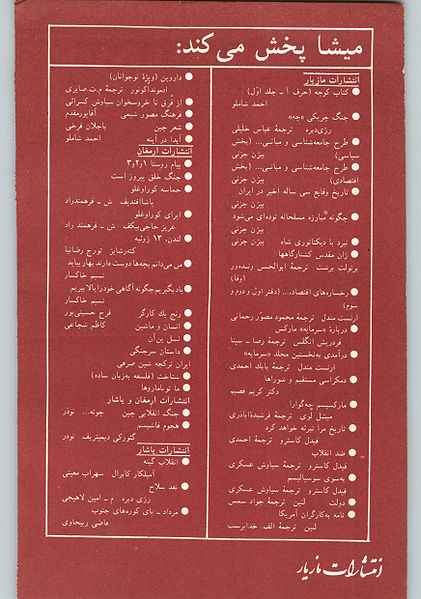 میشا پخش می‌کند:
انتشارات مازیار
● کتاب کوچه (حرف آ ـ جلد اول)
احمد شاملو
● جنگ چریکی «چه»
رژی‌دبره ترجمهٔ عباس خلیلی
● طرح جامعه‌شناسی و مبانی... (بخش
سیاسی) بیژن جزنی
● طرح جامعه‌شناسی و مبانی... (بخش
اقتصادی) بیژن جزنی
● تاریخ وقایع سی ساله اخیر در ایران
بیژن جزنی
● چگونه مبارزه مسلحانه توده‌ای می‌شود
بیژن جزنی
● نبرد با دیکتاتوری شاه بیژن جزنی
● ژان مقدس کشتارگاهها
برتولت برشت ترجمهٔ ابوالحسن ونده‌ور
(وفا)
● رخساره‌های اقتصاد... (دفتر اول و دوم و
سوم)
ارنست مندل ترجمهٔ محمود مصور رحمانی
● دربارهٔ «سرمایه» مارکس
فردریش انگلس ترجمهٔ رضا ـ سینا
● درآمدی به‌نخستین مجلد «سرمایه»
ارنست مندل ترجمهٔ بابك احمدی
● دمکراسی مستقیم و شوراها
دکتر کریم قصیم
● مارکسیسم چه‌گوارا
میشل لوی ترجمهٔ فرشیده‌اباذری
● تاریخ مرا تبرئه خواهد کرد
فیدل کاسترو ترجمهٔ احمدی
● ضد انقلاب
فیدل کاسترو ترجمهٔ سیاوش عسکری
● به‌سوی سوسیالیسم
فیدل کاسترو ترجمهٔ سیاوش عسکری
● دولت لنین ترجمهٔ جواد شمس
● نامه به‌کارگران آمریکا
لنین ترجمهٔ الف. خداپرست
● داروین (ویژهٔ نوجوانان)
ادموند‌اکونور ترجمهٔ م.ت.صابری
● از قرق تا خروسخوان سیاوش کسرائی
● فرهنگ مصور شیمی آفاپور‌مقدم
● شعر چین باجلان فرخی
● آیدا در آینه احمد شاملو
انتشارات ارمغان
● پیام روستا ۱و۲و۳
● جنگ خلق پیروز است
● حماسه کوراوغلو
پاشا‌افندیف ش ـ فرهمندراد
● اپرای کوراوغلو
عزیر حاجی‌بیکف ش ـ فرهمند راد
● لندن، ۱۳ ژوئیه
کته‌رشایز تورج رضانیا
● من می‌دانم بچه‌ها دوست دارند بهار بیاید
نسیم خاکسار
● یادبگیریم چگونه آگاهی خود را بالا ببریم
نسیم خاکسار
● رنج یك کارگر فرح حسینی‌پور
● انسان و ماشین کاظم شجاعی
● نسل پن‌آن
● داستان سرجنگی
ایران ترکچه شین صرفی
● شناخت (فلسفه به‌زبان ساده)
● ما توپاماروها
انتشارات ارمغان و یاشار
● جنگ انقلابی چین چوته... نوذر
● هجوم فاشیسم
گئورگی دیمیتریف نوذر
انتشارات یاشار
● انقلاب گینه
آمیلکار کابرال سهراب معینی
● نقد سلاح
رژی دبره م ـ امین لاهیجی
● مرداد ـ پای کوره‌های جنوب
قاضی ربیحاوی
انتشارات مازیار